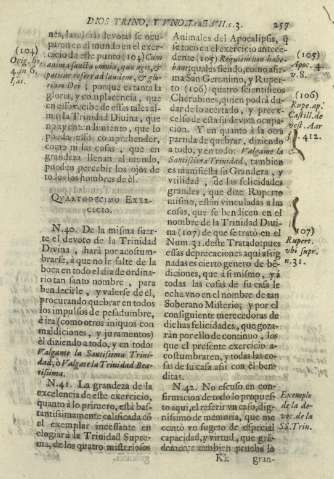 DIOS TRINO, Y UNO, Trat. VII. c. 3. 257
(104)
Orig. ho.
4. in 6.
Isai.
nes, hará el devoto se ocupen
en el mundo en el exercicio
de este punto; (104) Cum
gloriam Dei; porque es tanta la
gloria, y complacencia, que
mi la Trinidad Divina, que
no ay entendimiento, que lo
pueda comprehender,
como ni las cosas, que en
grandeza llenan al mundo,
pueden percebir los ojos de
todos los hombres de él.
QUARTODECIMO EXER-
CICIO.
N. 40. De la misma suer-
te el devoto de la Trinidad
Divina, hará por acostum-
brarse, a que no se salte de la
boca en todo el dia de ordina-
rio tan santo nombre, para
bendecirle, y valerse de él,
procurando quebrar en todos
los impulsos de pesadumbre,
è ira (como otros iniquos con
maldiciones, y juramentos)
él diziendo a todo, y en todo:
Valgame la Santissima Trini-
dad, ò Valgate la Trinidad Bea-
tissima.
N. 41. La grandeza de la
excelencia de este exercicio,
quanto à lo primero, està bas-
tantissimamente calificada
el exemplar incessante en
elogiar à la Trinidad Supre-
ma, de los quatro misteriosos
Animales del Apocalipsis, q
se tocò en el exercicio antece-
dente (105) Requiem non habe-
bant; que siendo, como afir-
ma San Geronimo, y Ruper-
to (106) quatro scientificos
Cherubines, quien podrà du-
dar de lo acertado, y precel-
so de esta su devota ocupa-
cion. Y en quanto à la otra
partida de quebrar, diziendo
à todo, y en todo: Valgame la
Santissima Trinidad, tambien
es manifiesta su Grandeza, y
vtilidad, de las felicidades
grandes, que dize Ruperto
mismo, estàn vinculadas à las
cosas, que se bendicen en el
nombre de la Trinidad Divi-
na (107) de que se tratò en el
Num. 31. deste Tratado; pues
estas deprecaciones aqui asig-
nadas es cierto genero de bē-
diciones, que à si mismo, y à
todas las cosas de su casa le
echa vno en el nombre de tan
Soberano Misterio; y por el
consiguiente merecedoras de
dichas felicidades, que goza-
ràn por ello de continuo, los
que el presente exercicio a-
costumbraren, y todas las co-
sas de su casa assi con él ben-
ditas.
N. 42. No escuso en con-
firmacion de todo lo propues-
to aqui, el referir un caso, dig-
nissimo de memoria, que me
contò vn sugeto de especial
capacidad, y virtud, que gran-
demente tambien prueba lo
(105)
Apoc. 4.
v. 8.
(106)
Rupe. ap.
Castill. de
vest. Aar.
412.
(107)
Rupert.
vbi supr.
n. 31.
Exemplo
de la de-
voc. de la
SS. Trin.
Kk gran-